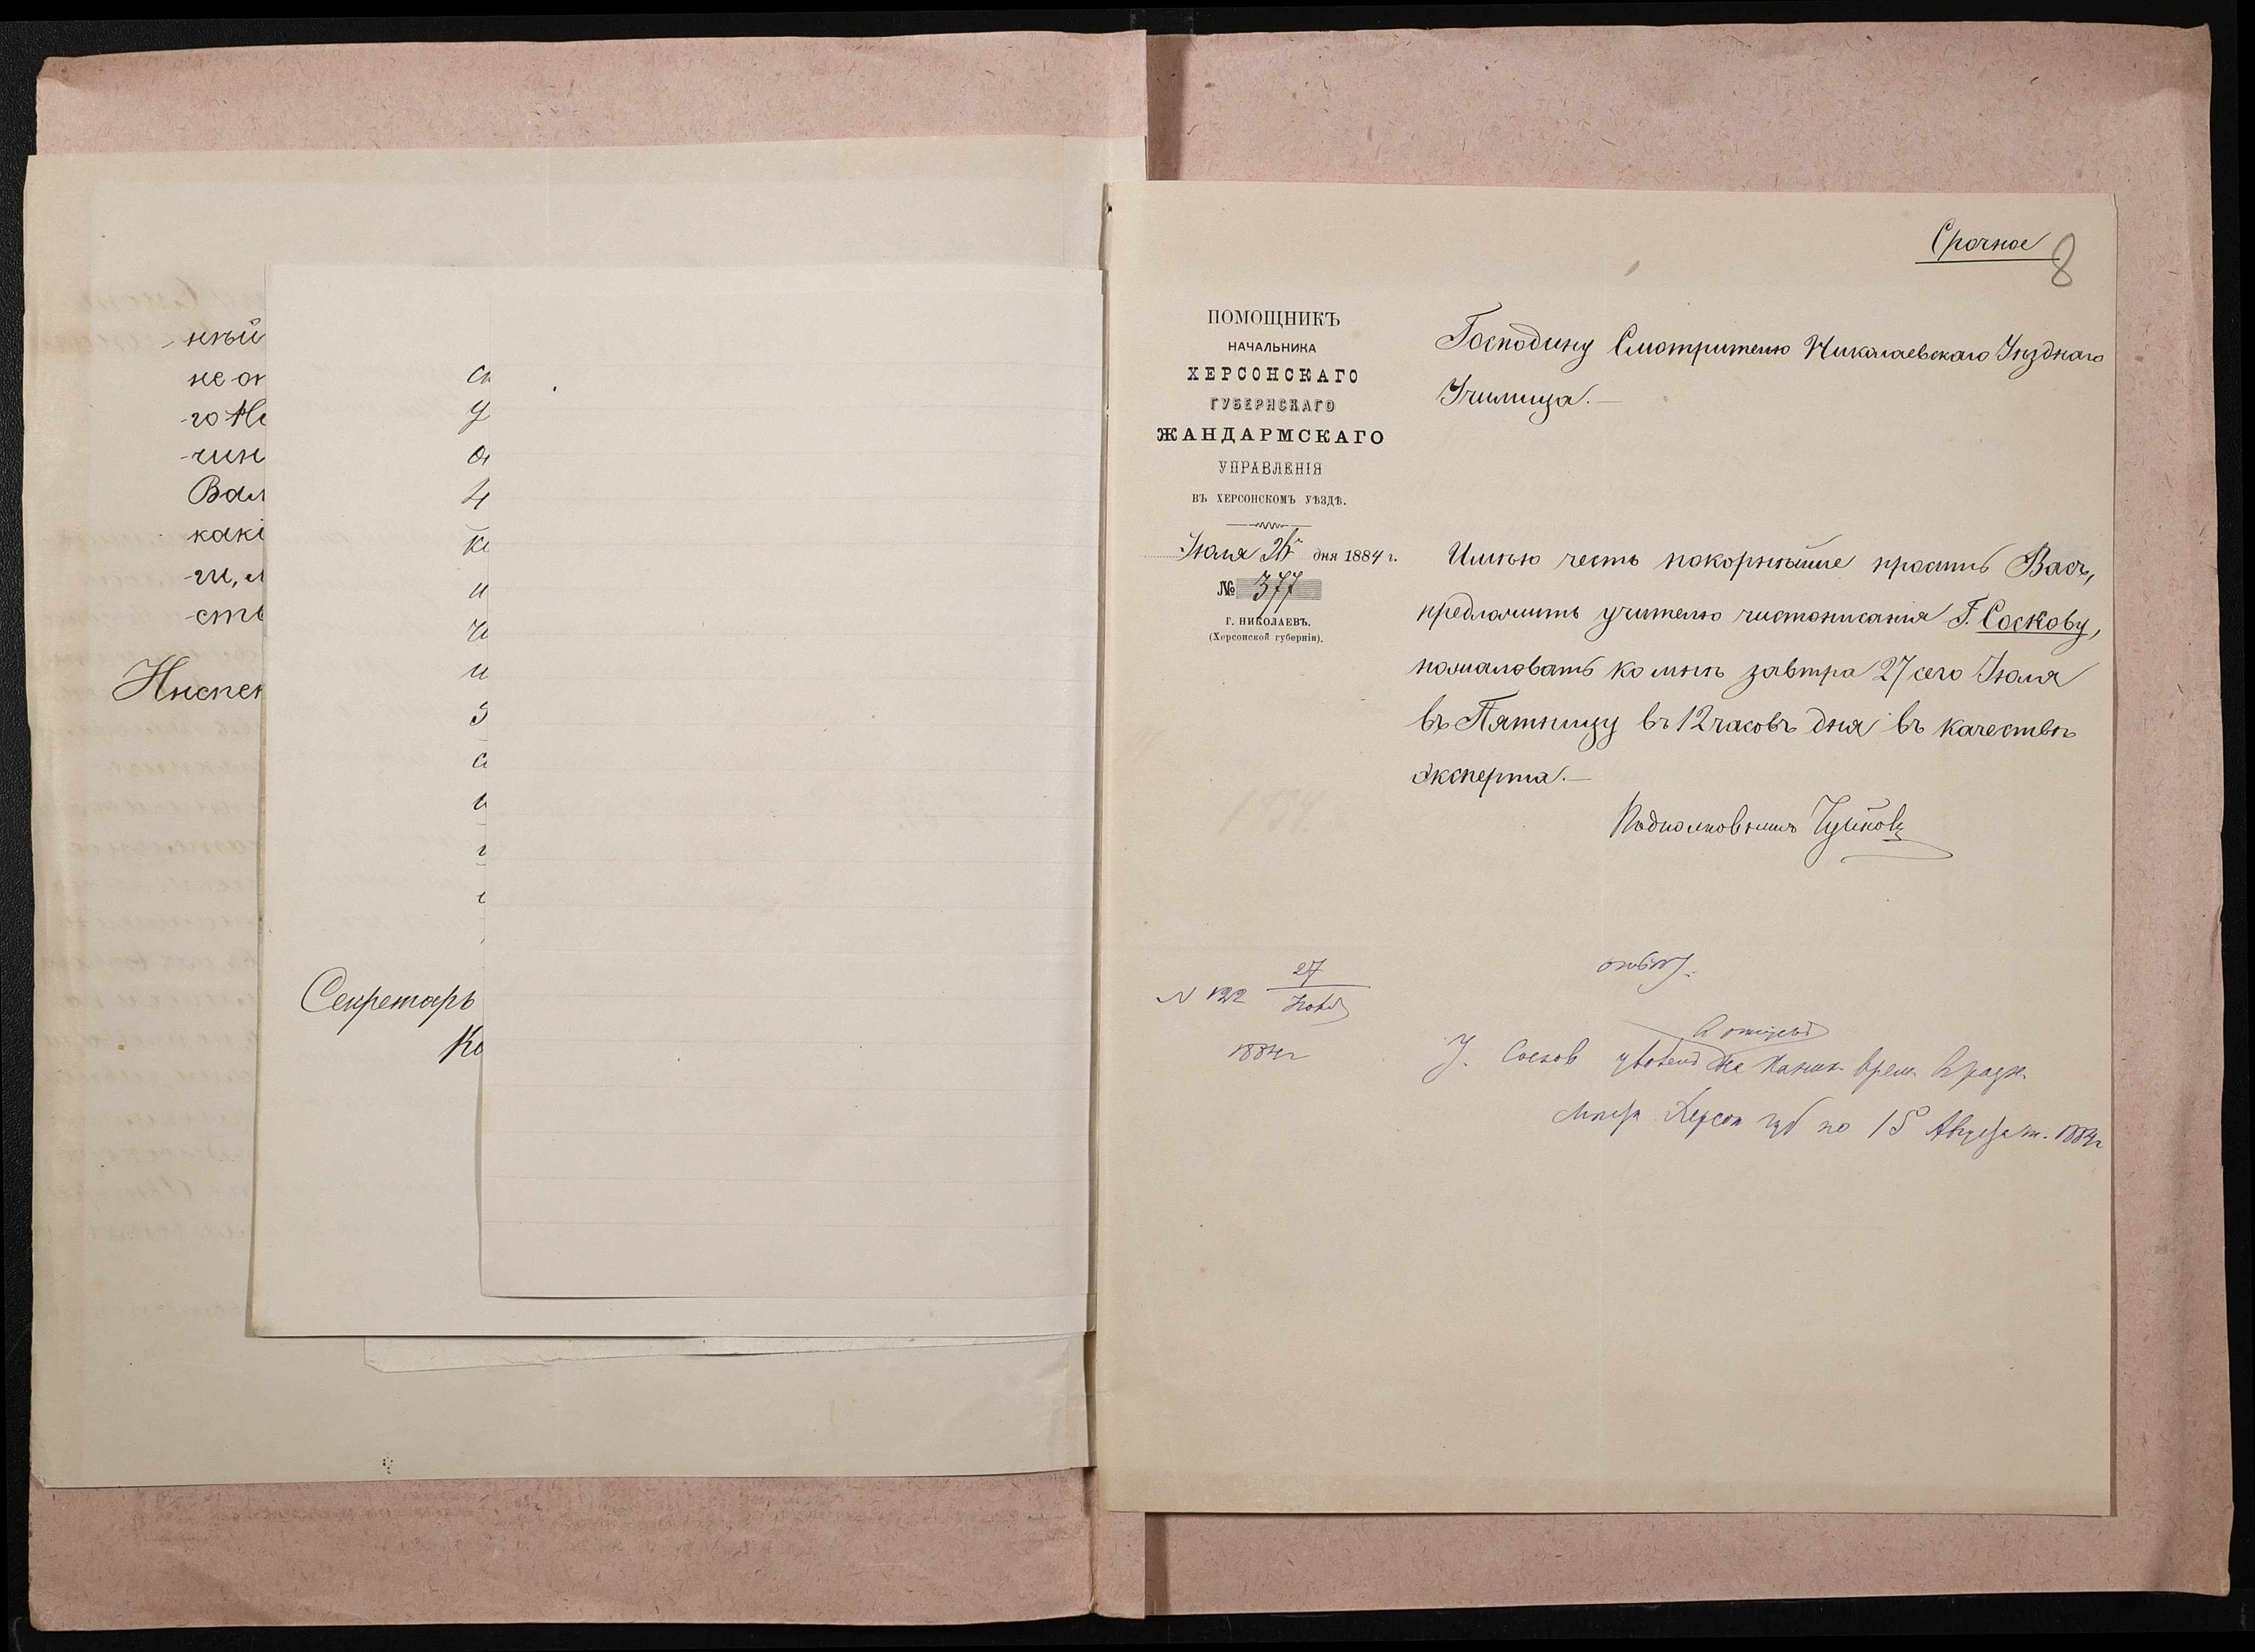 нѣй
не
го
чин
Ва
какі
ги,
сть
Инспек
у
и
и
Секретарь
Ко
Срочное
8
ПОМОЩНИКЪ
НАЧАЛЬНИКА
ХЕРСОНСКАГО
ГУБЕРНСКАГО
ЖАНДАРМСКАГО
УПРАВЛЕНІЯ
ВЪ ХЕРСОНСКОМЪ УѢЗДѢ.
Іюля 26 дня 1884 г.
№ 377
Г. НИКОЛАЕВЪ.
(Херсонской губерніи).
Господину Смотрителю Николаевскаго Уѣзднаго
Училища.—
Имѣю честь покорнѣйше просить Васъ,
предложить учителю чистописанія Г. Соскову,
пожаловать ко мнѣ завтра 27 сего Іюля
въ Пятницу въ 12 часовъ дня въ качествѣ
эксперта.—
Подполковникъ Чуйковъ
N 122 27
1884 г
У. Сосков на врем. в разн.
Херсон губ по 15 Августа 1884 г